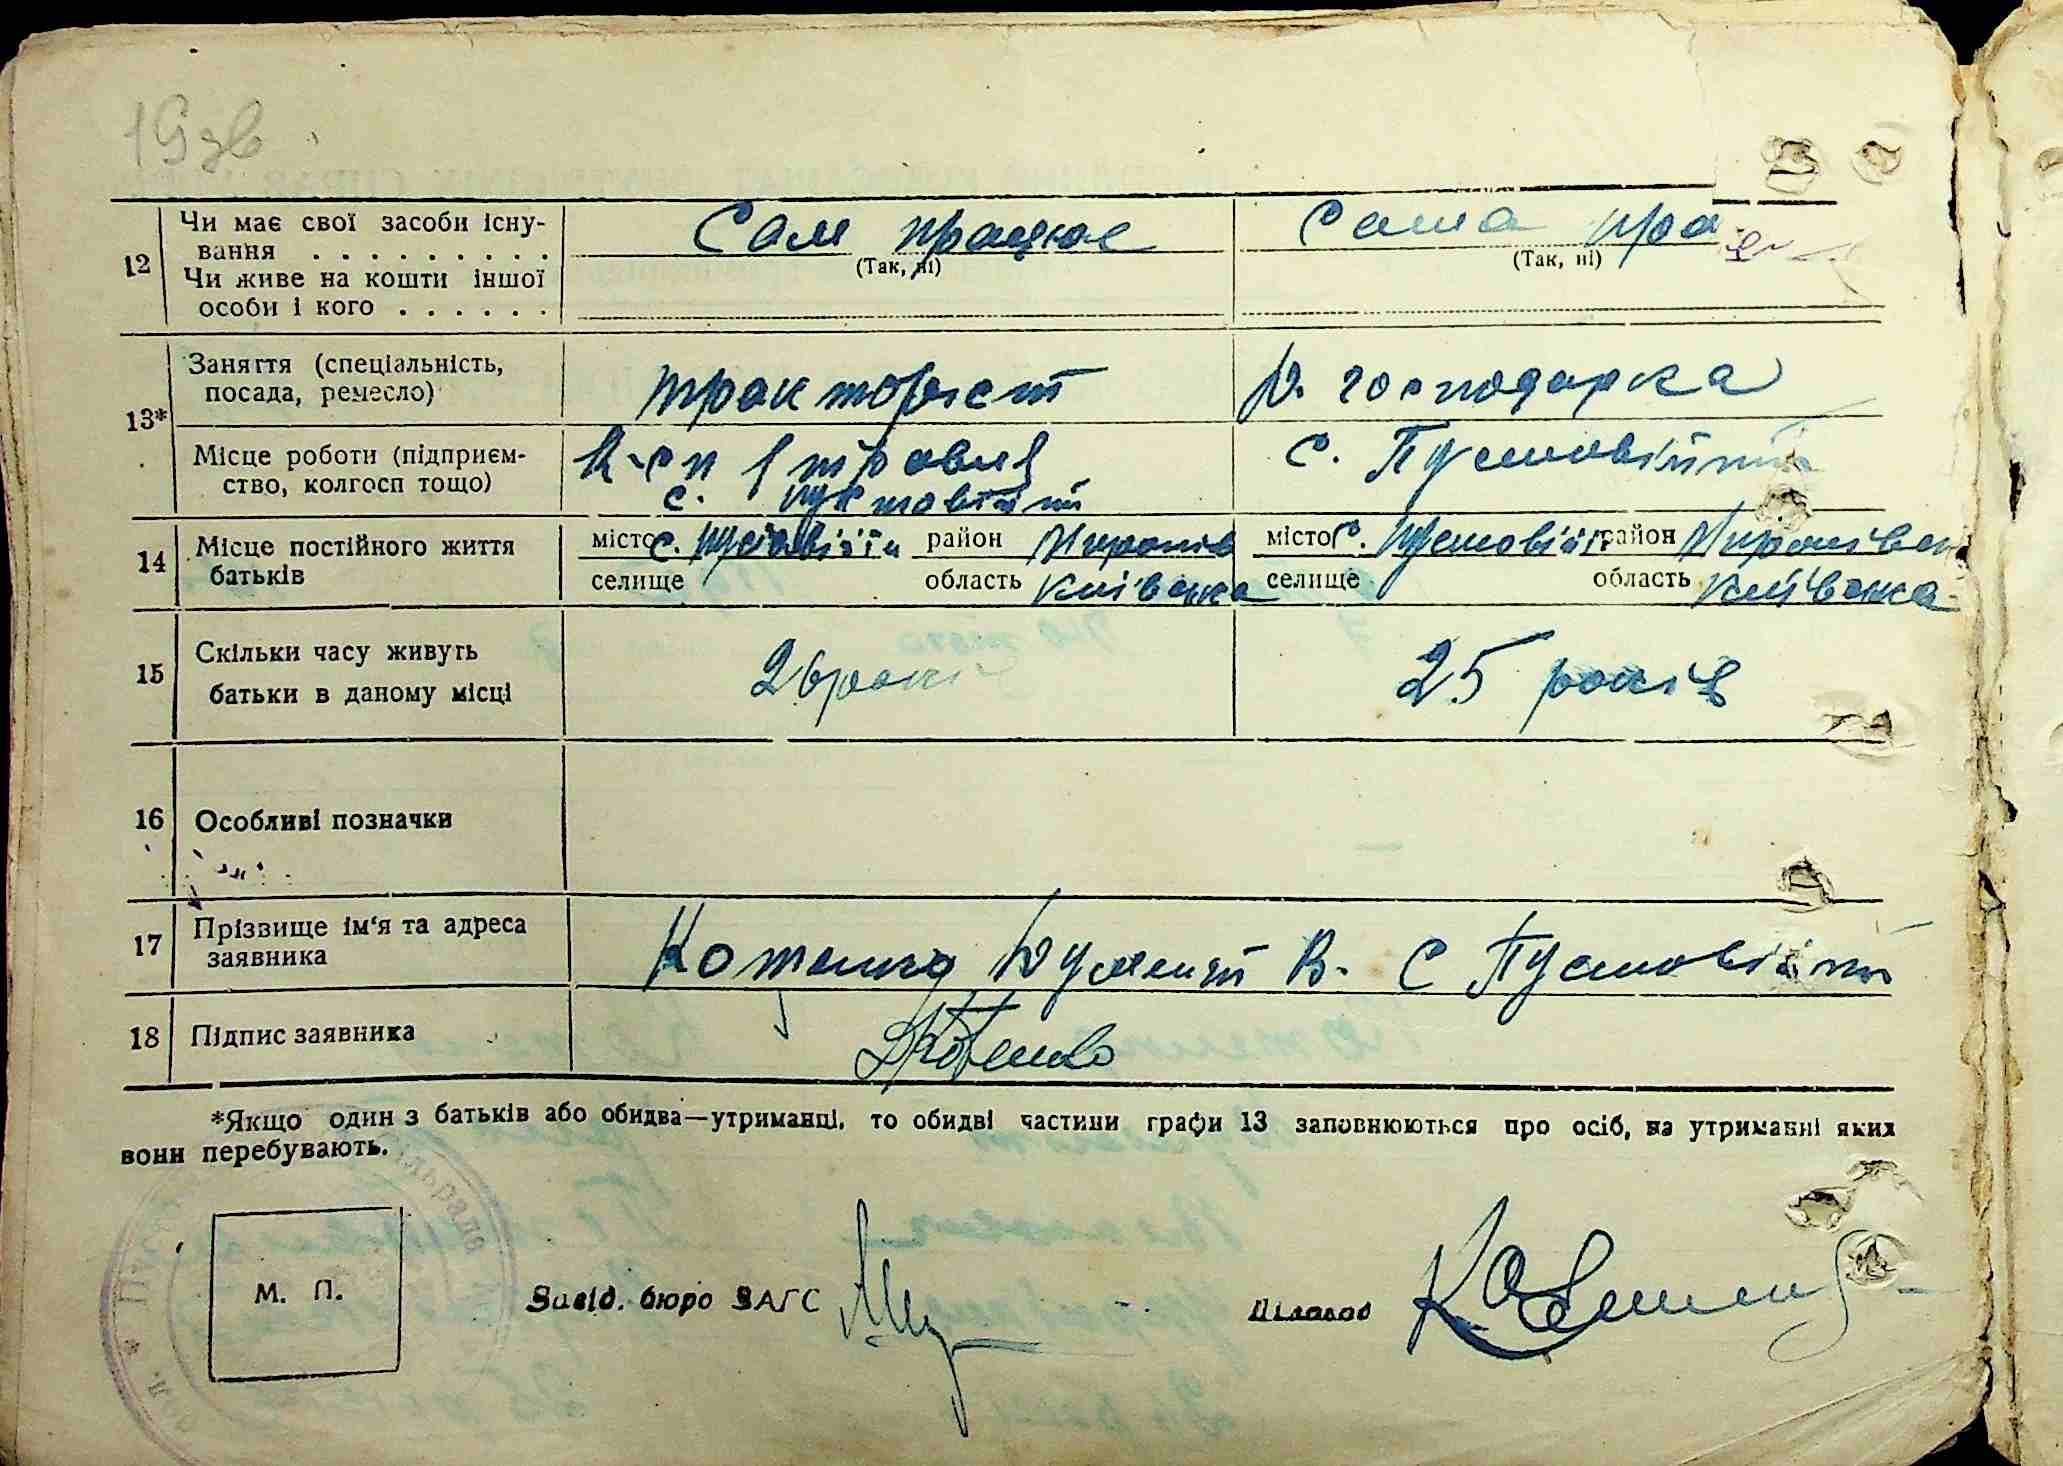 19зв
12 Чи має свої засоби існу-
вання . . . . . . . . . Сам працює Сама пра
Чи живе на кошти іншої (Так, ні) (Так, ні)
особи і кого . . . . . .
13* Заняття (спеціальність,
посада, ремесло) тракторист д. господарка
Місце роботи (підприєм- К-сп 1 травня с. Пустовійти
ство, колгосп тощо) с. Пустовійти
14 Місце постійного життя місто с. Пустовійти район Миронів місто с. Пустовійти район Миронівка
батьків селище область Київська селище область Київська
15 Скільки часу живуть
батьки в даному місці 26 років 25 років
16 Особливі позначки
17 Прізвище ім'я та адреса
заявника В. С Пустовійти
18 Підпис заявника
*Якщо один з батьків або обидва—утриманці, то обидві частини графи 13 заповнюються про осіб, на утриманні яких
вони перебувають.
М. П. Завід. бюро ЗАГС Діловод